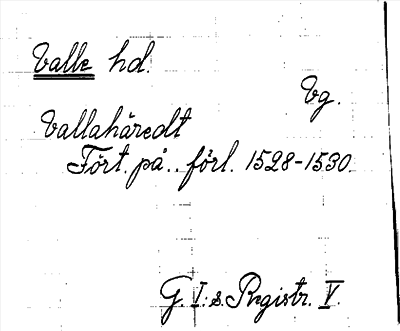 Valle hd.
Vg.
Vallahäredt
Fört. på.. förl. 1528-1530.
G. I:s. Registr. V.